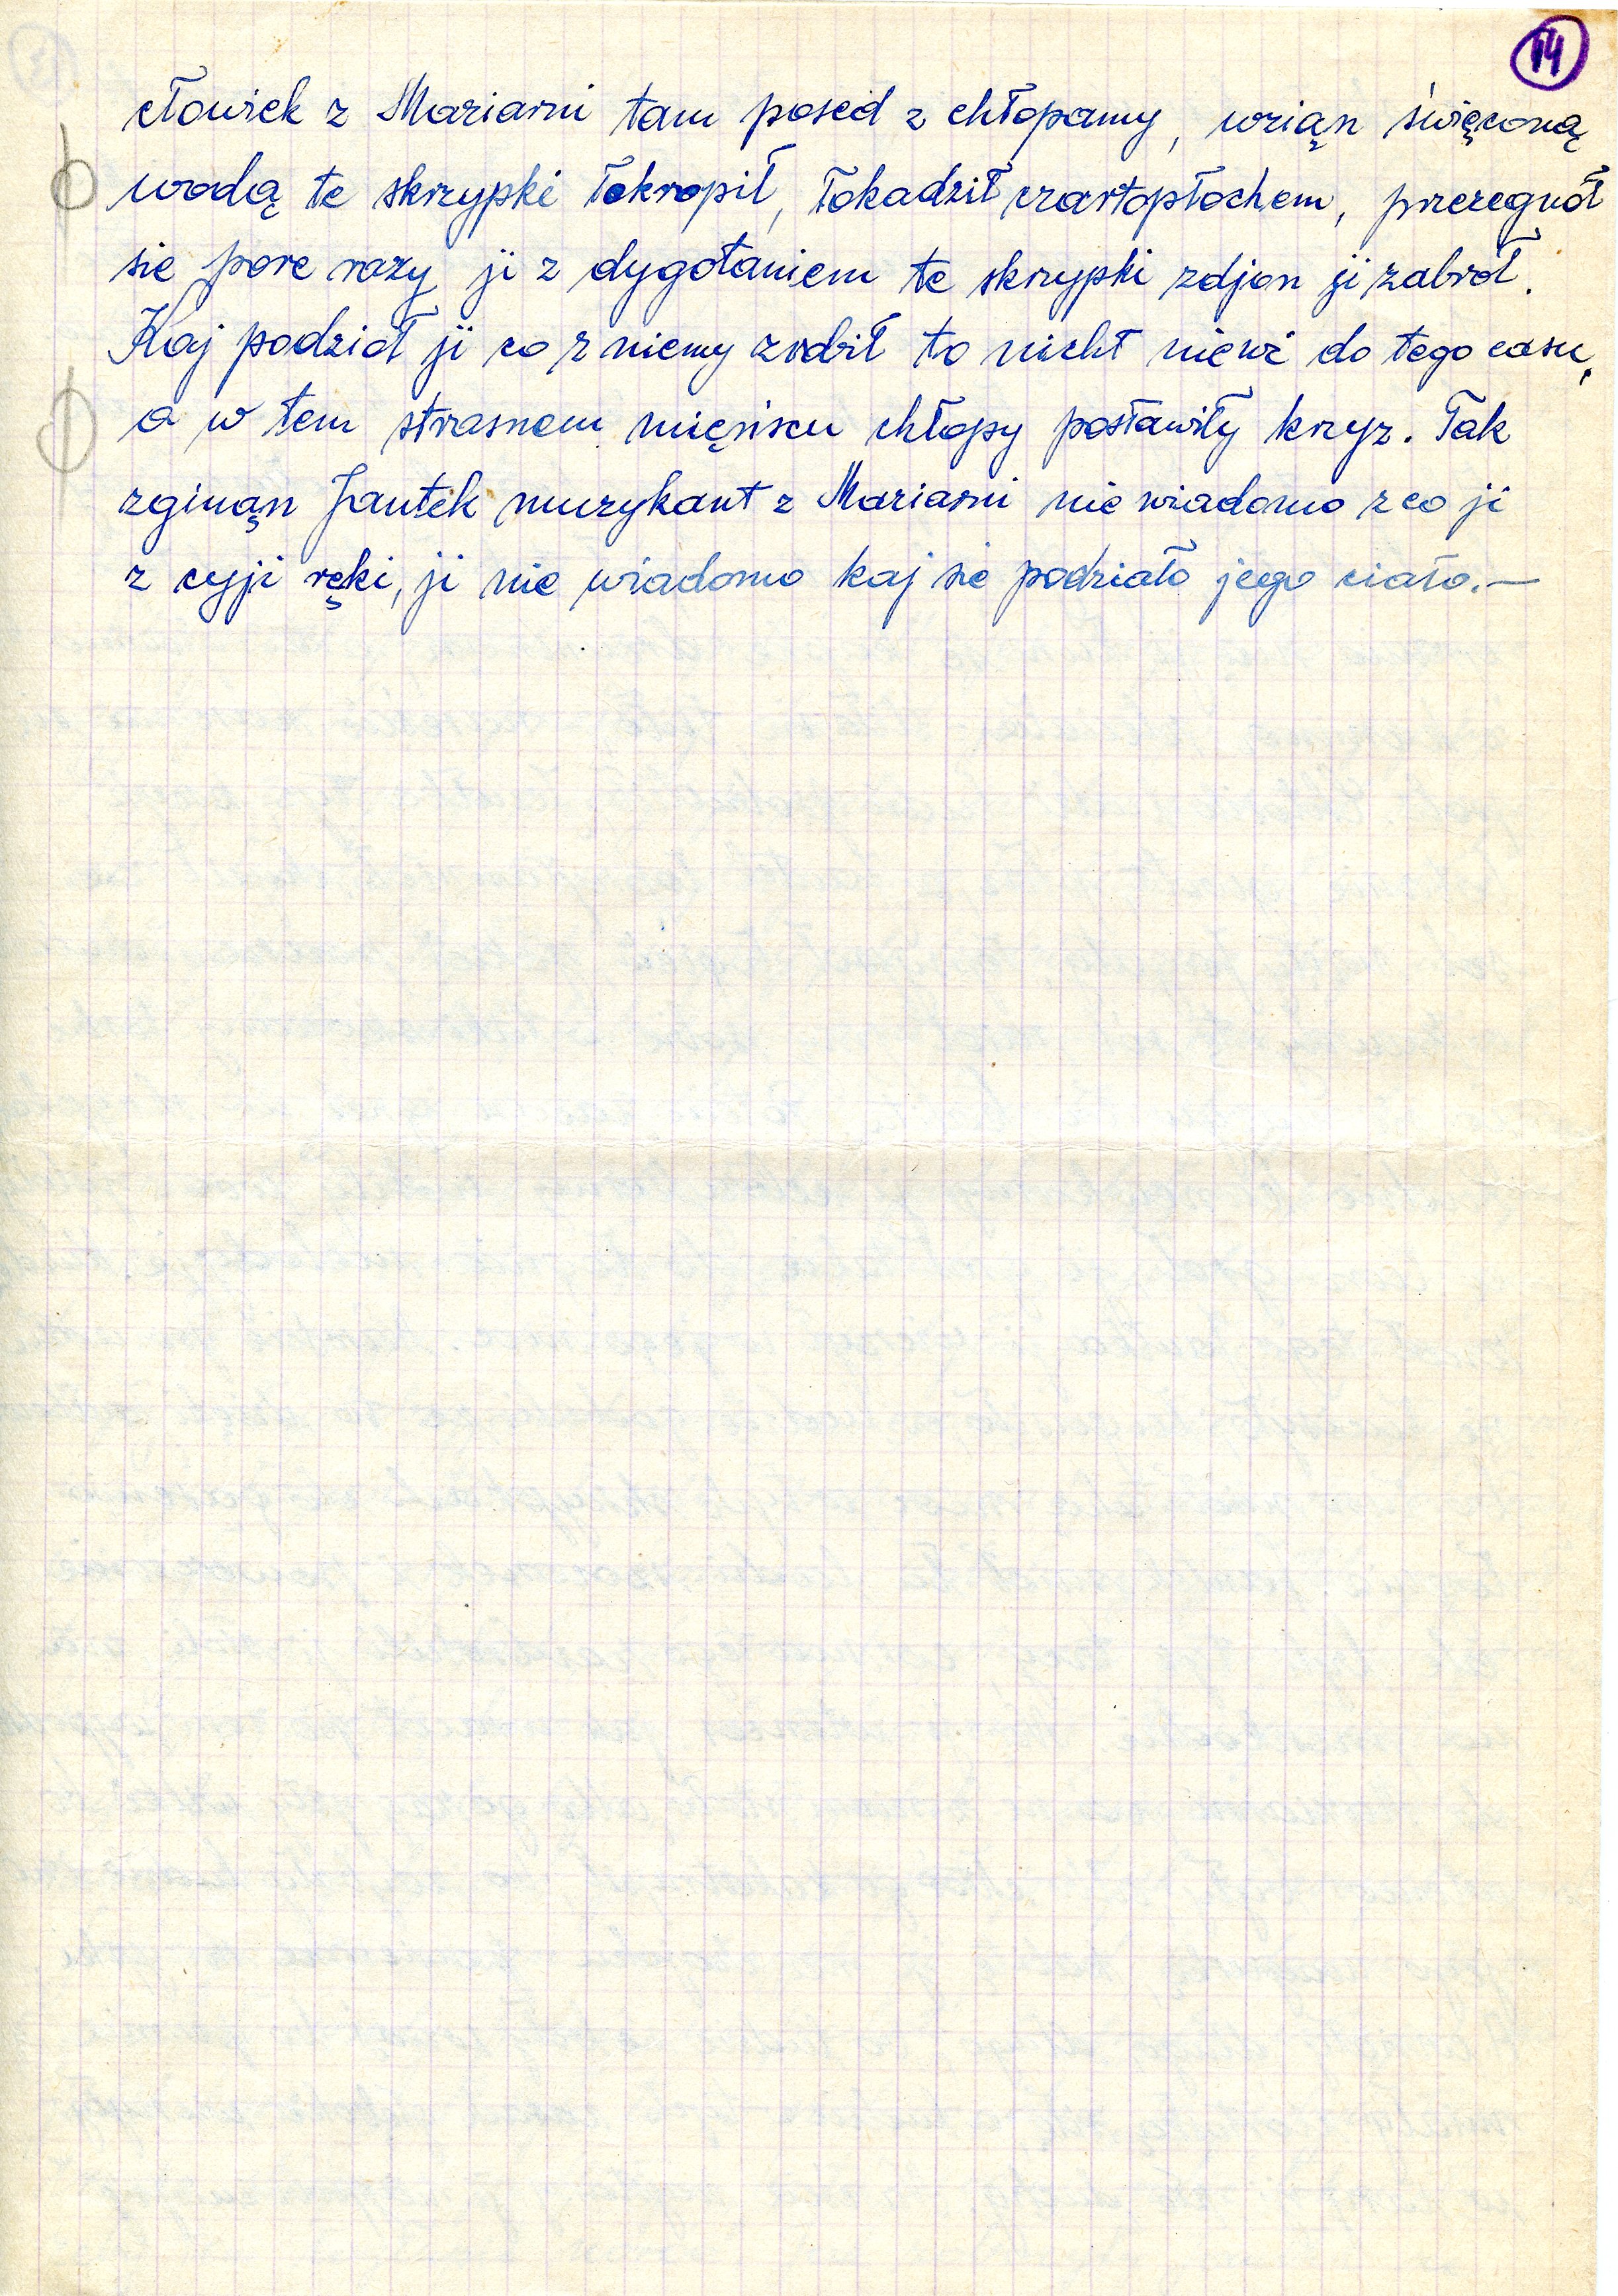 14
cłowiek z Mariami tam posed z chłopamy, wziąn święconą
wodą te skrzypki łokropił, łokadził czartopłochem, przezegnół
sie pore razy ji z dygotaniem te skrzypki zdjon ji zabroł.
Kaj podzioł ji co z niemy zrobił to nicht niewi do tego casu,
a w tem strasnem mięńscu chłopy postawiły krzyz. Tak
zginąn Jantek muzykant z Mariami nie wiadomo z co ji
z cyji ręki, ji nie wiadomo kaj sie podziało jego ciało.—